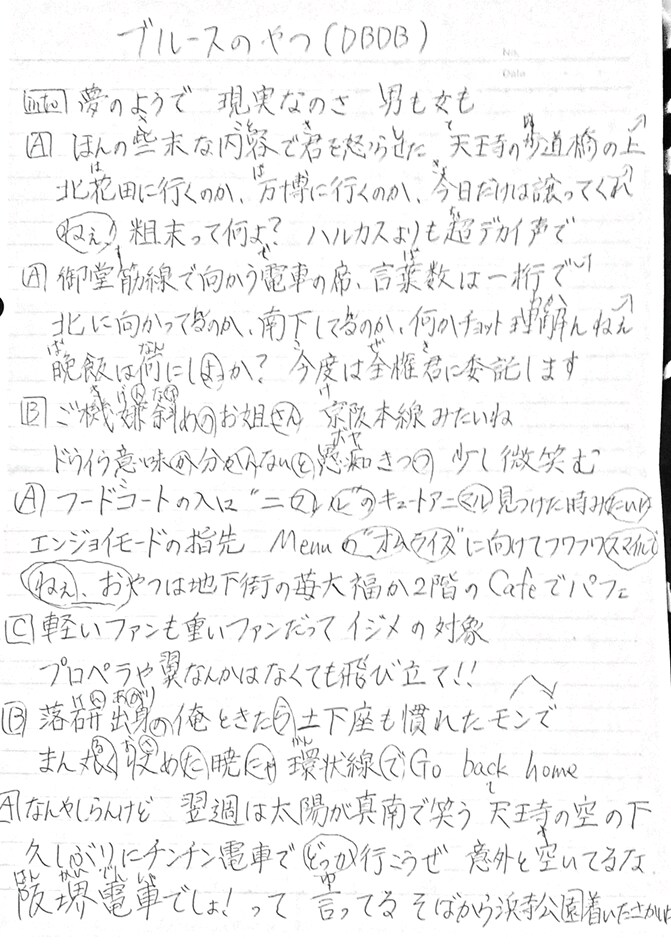 ブルースのやつ(DBDB)
No.
Date
intro 夢のようで 現実なのさ 男も女も
A ほんの些末な内容で君を怒らせた 天王寺の歩道橋の上
北花田に行くのか、万博に行くのか、今日だけは譲ってくれ
ねぇ! 粗末って何よ? ハルカスよりも超デカイ声で
A 御堂筋線で向かう電車の席、言葉数は一桁で
北に向かってるのか、南下してるのか、何かチョット理解んねぇ
晩飯は何にしよか? 今度は全権君に委託します
B ご機嫌斜めのお姐さん 京阪本線みたいね
ドウイウ意味か分かんないと愚痴きつつ 少し微笑む
A フードコートの入口 "ニフレル"のキュートアニマル見つけた時みたいに
エンジョイモードの指先 Menuの"オムライズ"に向けてフワフワスマイルで
ねぇ、おやつは地下街の苺大福か2階のCafeでパフェ
C 軽いファンも重いファンだってイジメの対象
プロペラや翼なんかはなくても飛び立て!!
B 落研出身の俺ときたら土下座も慣れたモンで
まん丸く収めた暁にゃ環状線でGo back home
A なんやしらんけど 翌週は太陽が真南で笑う 天王寺の空の下
久しぶりにチンチン電車でどっか行こうぜ 意外と空いてるな
阪堺電車でしょ!って 言ってる そばから浜寺公園着いたさかいに